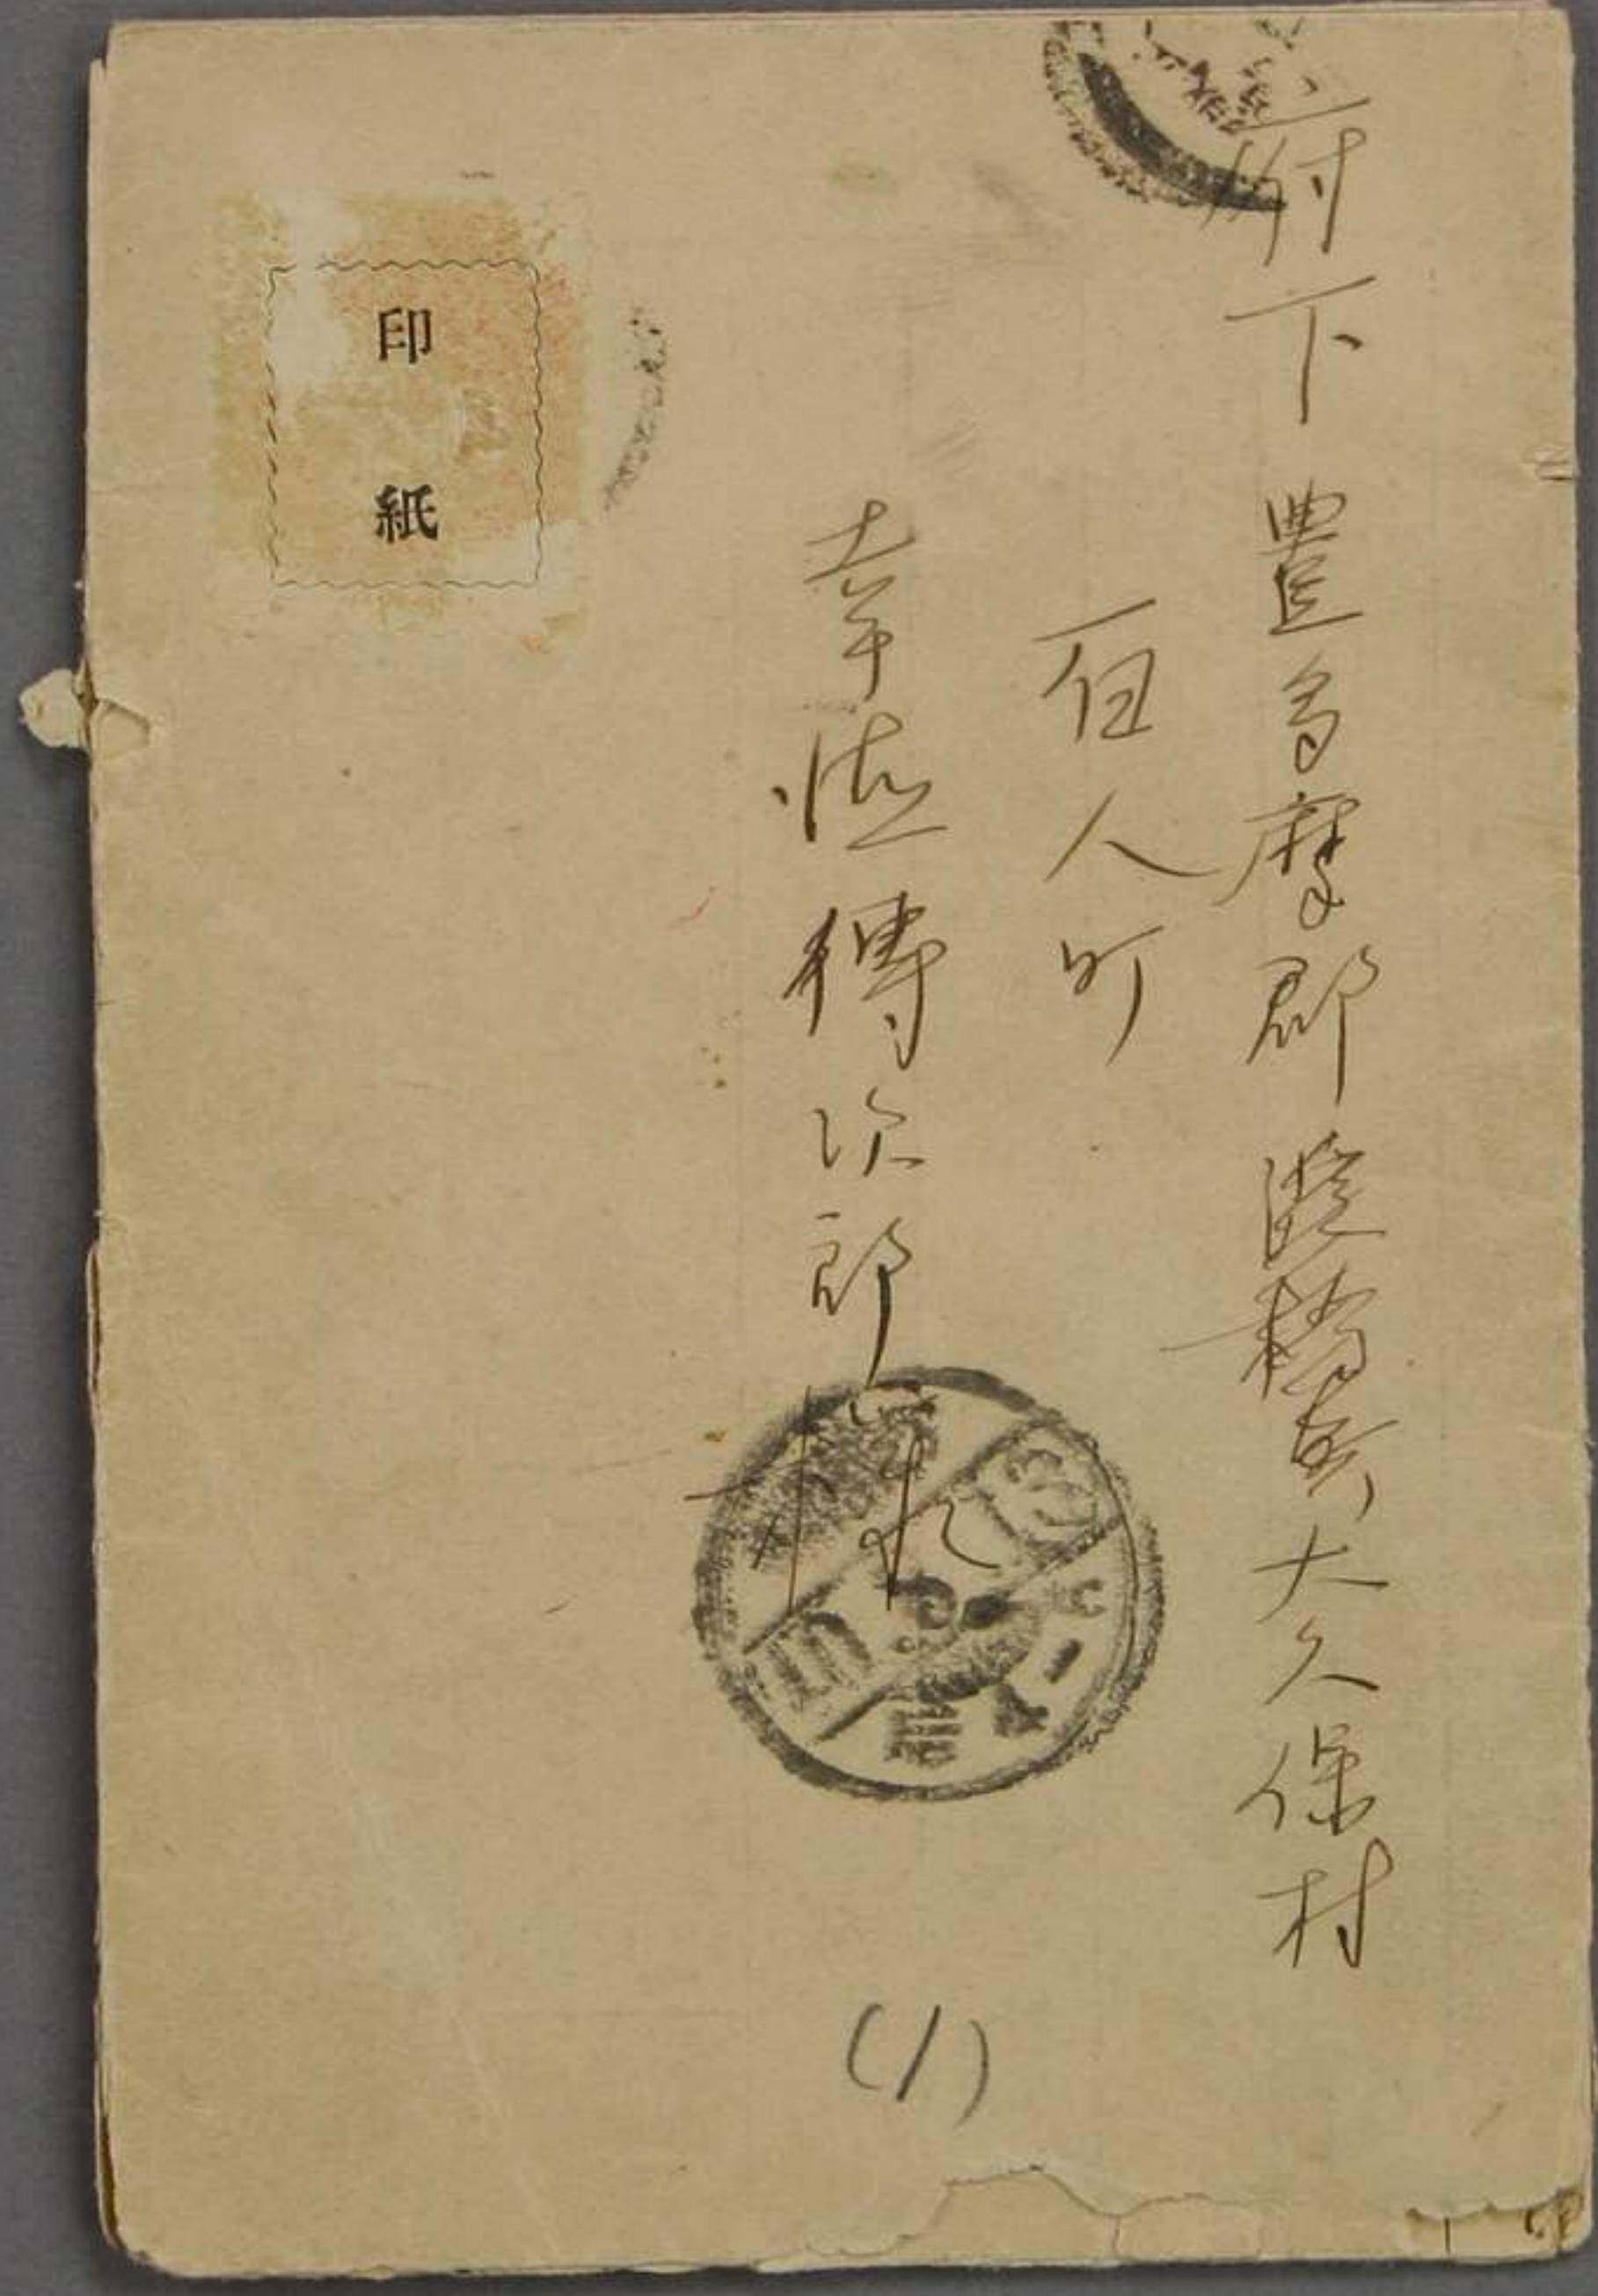 府下豊多摩郡淀橋大久保村
百人町
幸徳傳次郎
印紙
(1)